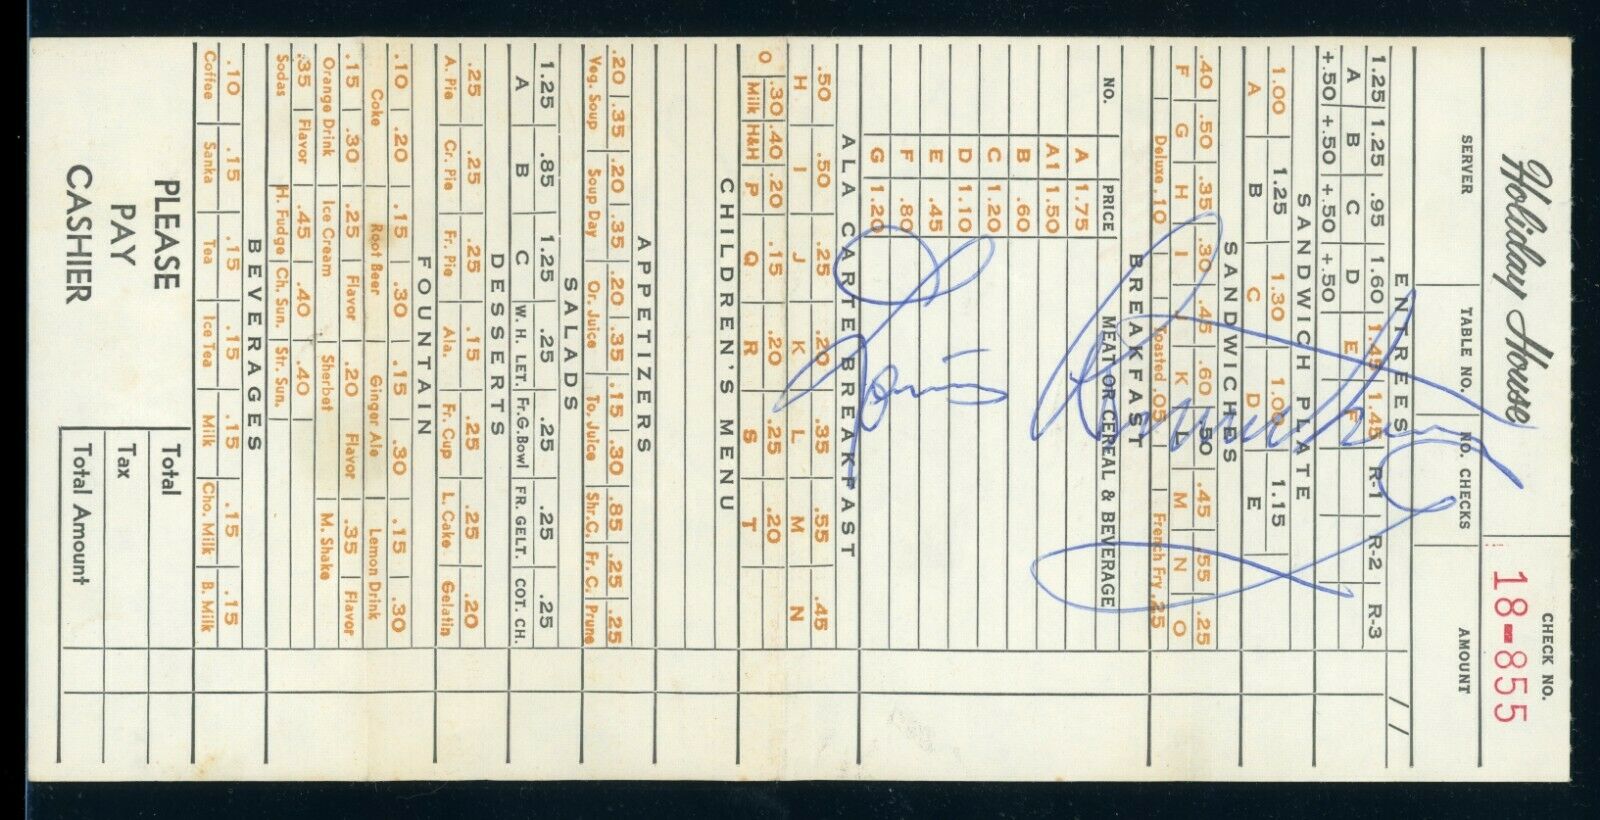 Holiday House
CHECK NO.
18-855
SERVER TABLE NO. NO. CHECKS AMOUNT
ENTREES / /
1.25 1.25 .95 1.60 1.45 1.45 R-1 R-2 R-3
A B C D E F
+.50 +.50 +.50 +.50
SANDWICH PLATE
1.00 1.25 1.30 1.00 1.15
A B C D E
SANDWICHES
.40 .50 .35 .30 .45 .60 .50 .45 .55 .25
F G H I J K L M N O
Deluxe .10 Toasted .05 French Fry .25
BREAKFAST
NO. PRICE MEAT OR CEREAL & BEVERAGE
A 1.75
A1 1.50
B .60
C 1.20
D 1.10
E .45
F .80
G 1.20
Louis Armstrong
ALA CARTE BREAKFAST
.50 .50 .25 .20 .35 .55 .45
H I J K L M N
.30 .40 .20 .15 .20 .25 .20
O Milk H&H P Q R S T
CHILDREN'S MENU
APPETIZERS
.20 .35 .20 .35 .20 .35 .15 .30 .85 .25 .25
Veg. Soup Soup Day Or. Juice To. Juice Shr.C. Fr. C. Prune
SALADS
1.25 .85 1.25 .25 .25 .25 .25
A B C W. H. LET. Fr.G.Bowl FR. GELT. COT. CH.
DESSERTS
.25 .25 .25 .15 .25 .25 .20
A. Pie Cr. Pie Fr. Pie Ala. Fr. Cup L. Cake Gelatin
FOUNTAIN
.10 .20 .15 .30 .15 .30 .15 .30
Coke Root Beer Ginger Ale Lemon Drink
.15 .30 .25 Flavor .20 Flavor .35 Flavor
Orange Drink Ice Cream Sherbet M. Shake
.35 Flavor .45 .40 .40
Sodas H. Fudge Ch. Sun. Str. Sun.
BEVERAGES
.10 .15 .15 .15 .15 .15 .15
Coffee Sanka Tea Ice Tea Milk Cho. Milk B. Milk
PLEASE
PAY
CASHIER
Total
Tax
Total Amount